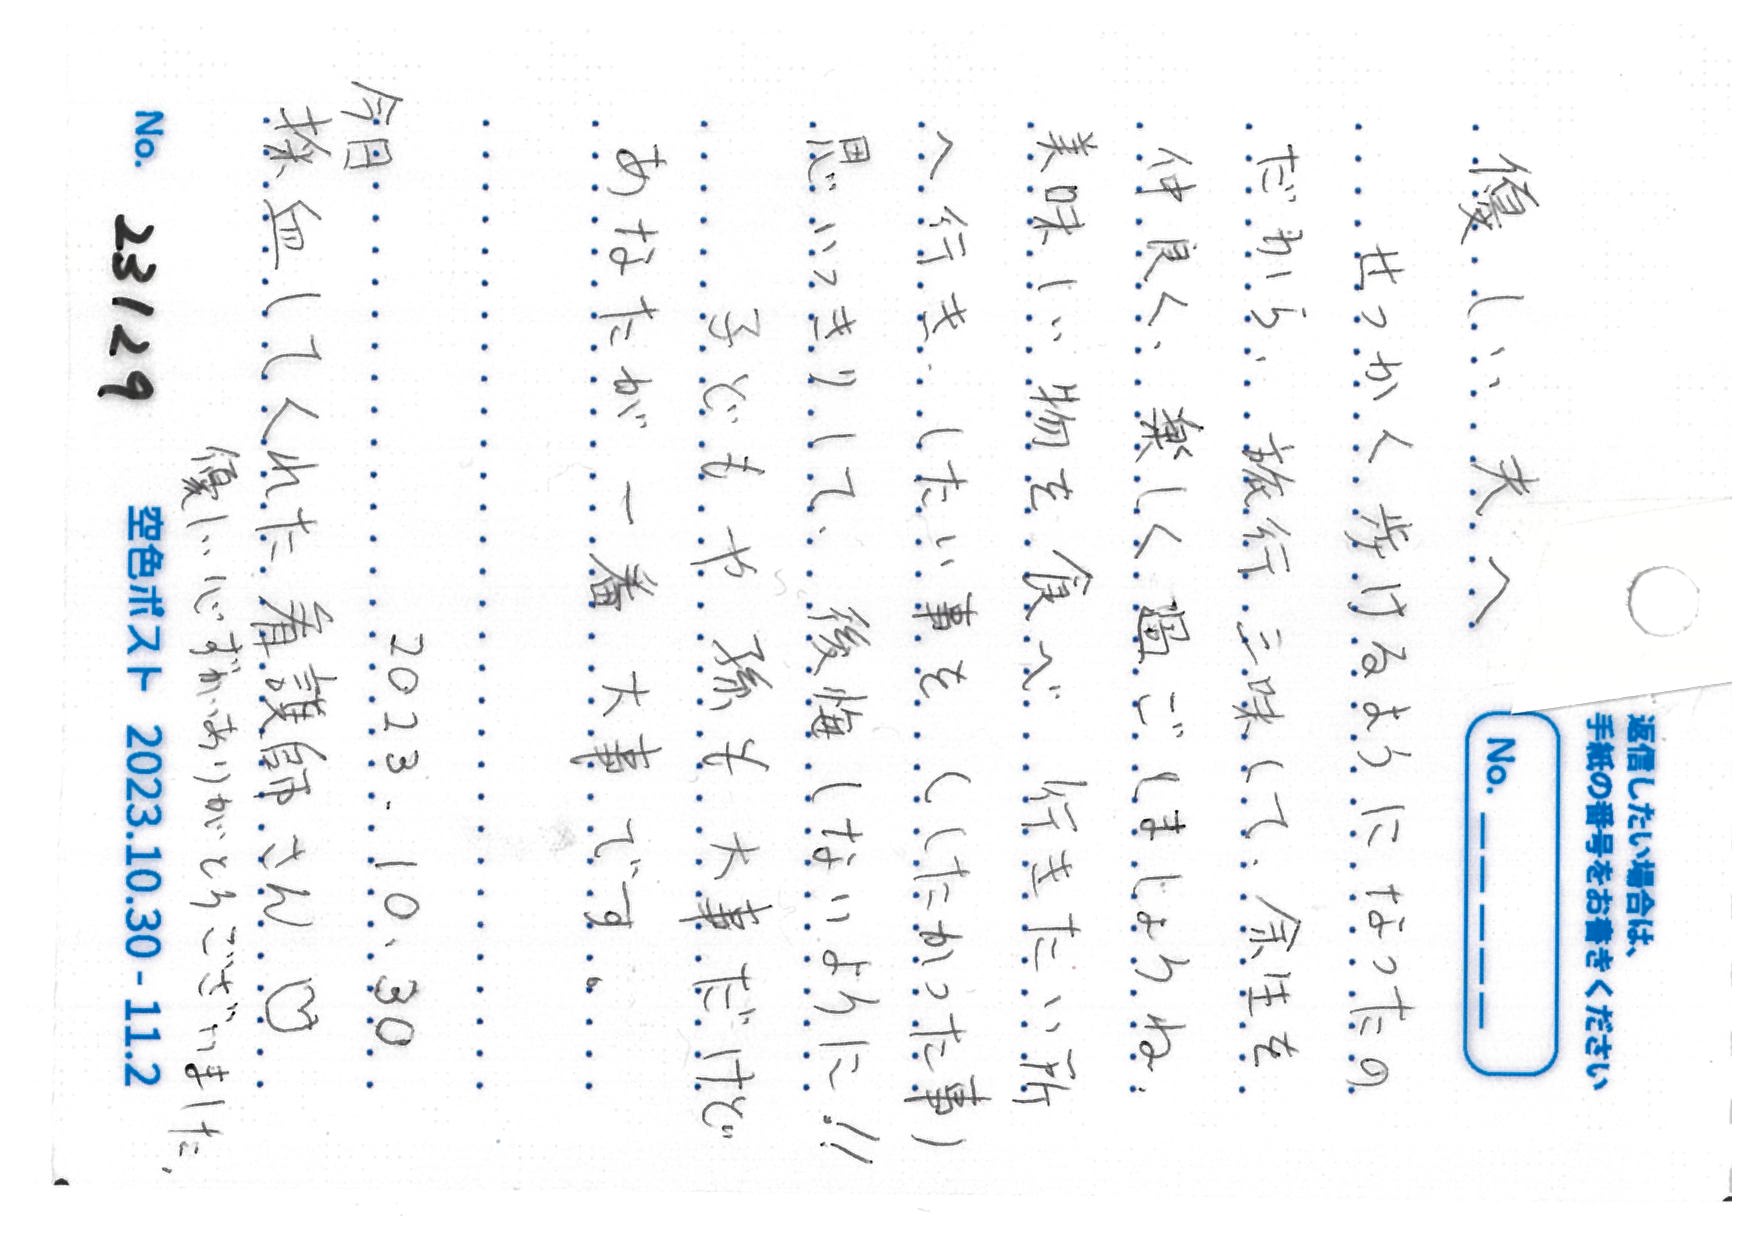 返信したい場合は、
手紙の番号をお書きください
No. _ _ _ _ _
優しい夫へ
せっかく歩けるようになったの
だから、旅行三味して、余生を
仲良く、楽しく過ごしましょうね。
美味しい物を食べ 行きたい所
へ行き、したい事を(したかった事)
思いっきりして、後悔しないように!!
子どもや孫も大事だけど
あなたが一番大事です。
2023.10.30
今日
採血してくれた看護師さん♡
優しい心ずかいありがとうございました。
No. 23129
空色ポスト 2023.10.30 - 11.2